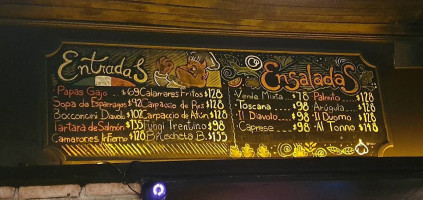 Entradas
Papas Gajo $69
Sopa de Esparragos $92
Bocconcini Diavolo $102
Tartara de Salmón $155
Camarones Infierno $128
Calamares Fritos $128
Carpaccio de Rez $128
Carpaccio de Atún $128
Fungi Trentino $98
Bruschetta B. $155
Ensaladas
Verde Mixta $78
Toscana $98
Il Diavolo $98
Caprese $98
Palmito $128
Arúgula $128
Il Duomo $128
Al Tonno $148